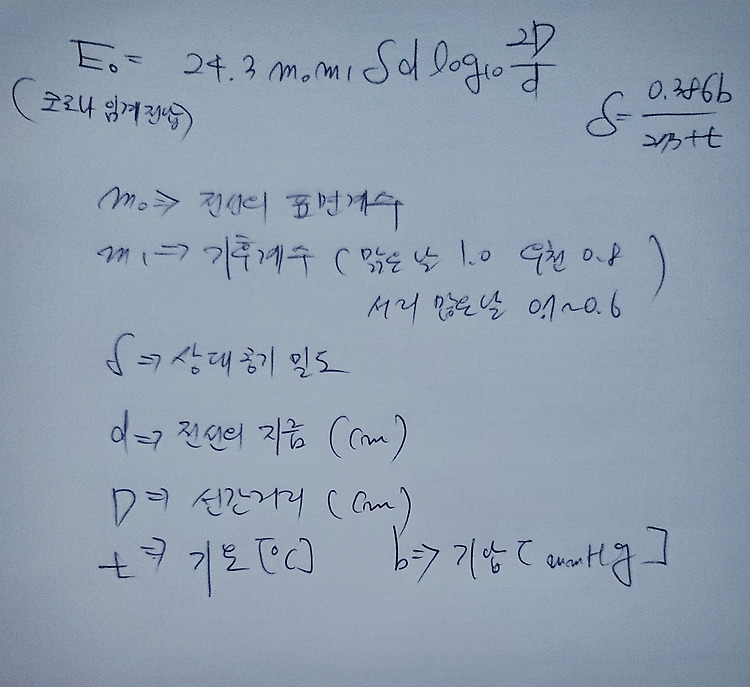 E₀ = 24.3 m₀m₁ δd log₁₀ 2D/d
(코로나 임계전압)
δ = 0.386b/273+t
m₀ ⇒ 전선의 표면계수
m₁ ⇒ 기후계수 ( 맑은 날 1.0 우천 0.8 )
서리 많은날 0.1~0.6
δ ⇒ 상대공기 밀도
d ⇒ 전선의 지름 (cm)
D ⇒ 선간거리 (cm)
t ⇒ 기온 [°C] b ⇒ 기압 [mmHg]